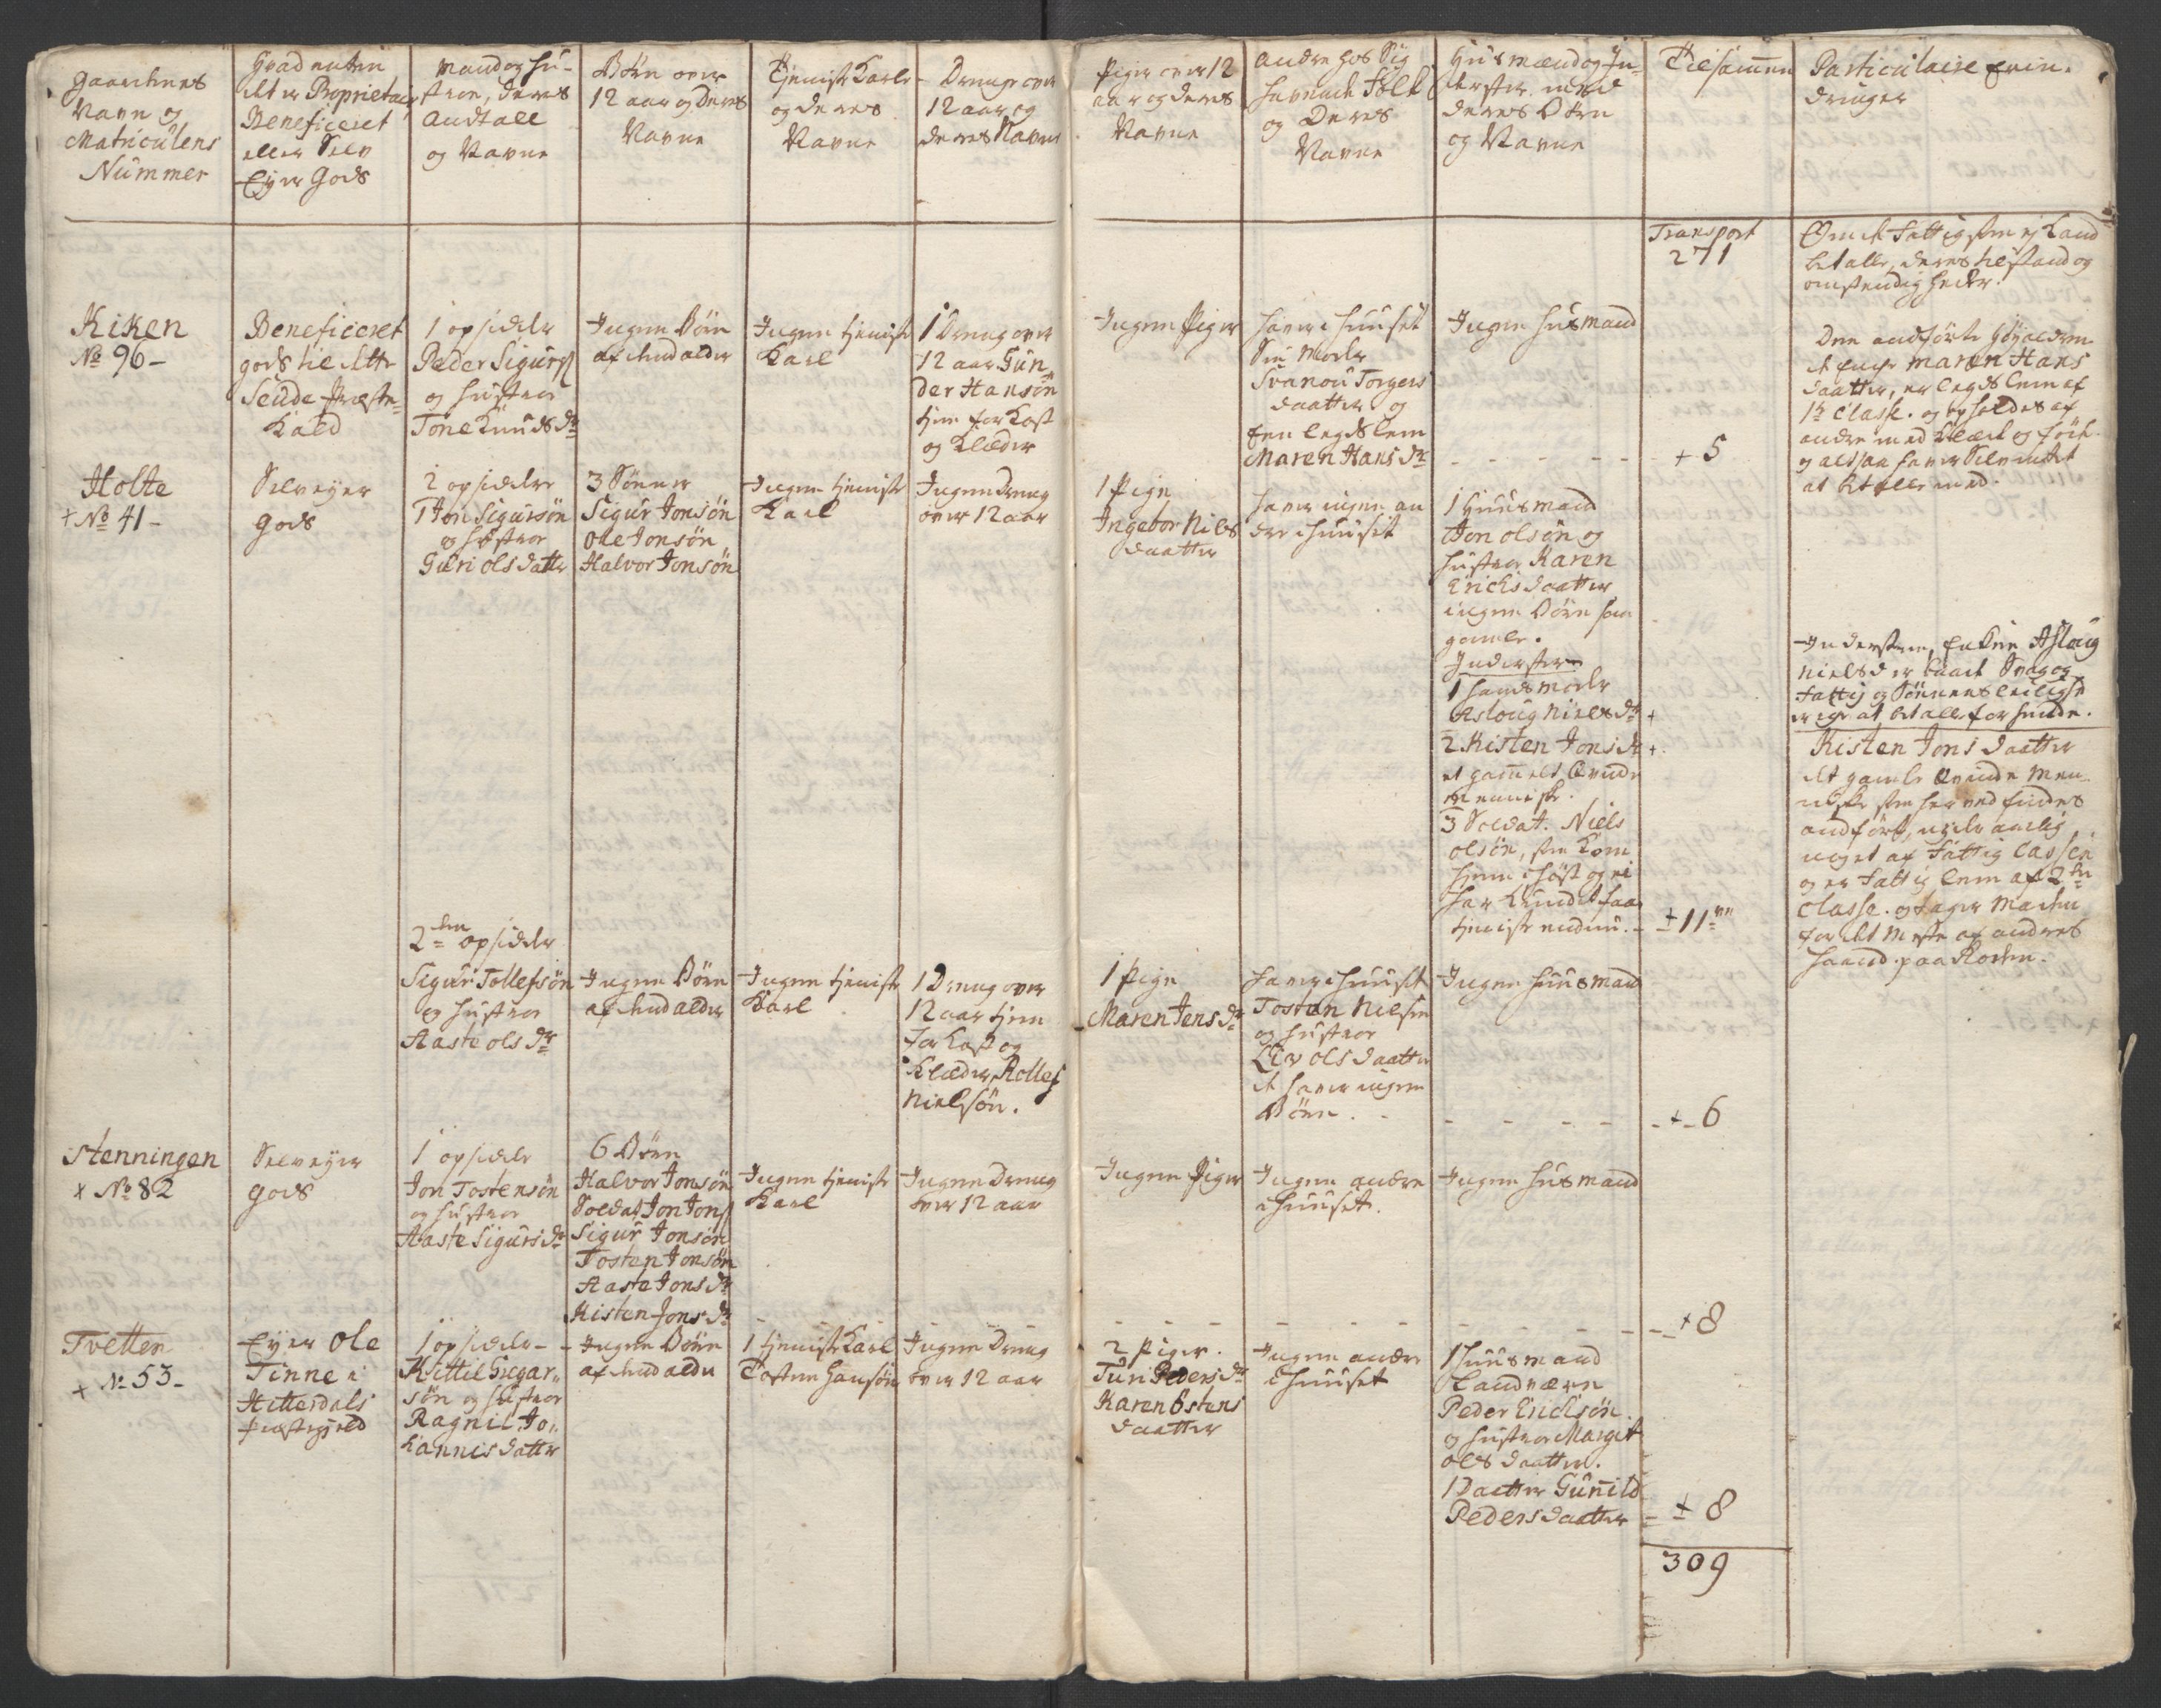 Gaardenes
Navn og
Matriculens
Nummer
Hvad enten
det er Proprietair
Beneficeret
eller Selv
Eyer Gods
Mand og Hu-
stroe, deres
Andtall
og Navne
Børn over
12 aar og Deres
Navne
Tieniste Karle
og deres
Navne
Drenge over
12 aar og
deres Navne
Piger over 12
aar og deres
Navne
Andre hos Sig
havende Folk
og Deres
Navne
Huusmænd og In-
derster med
deres Børn
og Navne
Tilsamen
Particulaire Erin-
dringer
Transport
271
Om de Fattig som ej Kand
betalle, deres tilstand og
omstendigheder.
Kiken
No 96-
Beneficeret
gods til
Seude Præste-
Kald
1 opsidder
Peder Sigurs
og hustroe
Tone Knuds dr
Ingen Børn
af den alder
Ingen tieniste
Karl
1 Dreng over
12 aar Gun-
der Hansøn
tien for Kost
og Klæder
Ingen Piger
haver i huuset
Sin Moder
Svanou Torgers
daatter og
een legdslem
Maren Hans dr
Ingen husmand
+ 5
Den andførte
Maren Hans
daatter, er legdslem af
1te Classe. og opholdes af
andre med Klæde og føde
og altsaa haver Selv intet
at betalle med.
Holte
+ No 41-
Selveyer
Gods
2 opsiddere
1 Jon Sigursøn
og hustroe
Guri Olsdatter
3 Sønner
Sigur Jonsøn
Ole Jonsøn
Halvor Jonsøn
Ingen tieniste
Karl
Ingen Dreng
over 12 aar
1 Pige
Ingebor Niels
daatter
haver ingen an
dre i huuset
1 Huusmand
Jon olsøn og
hustroe Karen
Erichsdaatter
ingen Børn saa
gamle.
Inderster
1 hands Moder
Asloug Niels dr +
2 Kisten Jons dr +
et gammelt Qvinde
menniske.
3 Soldat. Niels
olsøn, som Kom
hiem i høst og ei
har kundet faae
tieniste endnu.
+ 11
Indersten, Enken Aslaug
Nielsd er baade Svag og
fattig og Sønnens leilighed
er ege at betalle for hende.
Kisten Jonsdaatter
det gamle Qvinde Men
niske som her ved findes
andført, nyder aarlig
noget af Fattig Cassen
og er Fattig lem af 2den
Classe. og tager Maden
for det Meste af andres
haand paa Roden.
2den opsidder
Sigur Tollefsøn
og hustroe
Aaste ols dr
Ingen Børn
af den alder
Ingen tieniste
Karl
1 Dreng over
12 aar tien
for Kost og
Klæder, Rollef
Nielsøn.
1 Pige
Maren Jens dr
haver i huuset
Tosten Nielsen
og hustroe
Liv olsdaatter
de haver ingen
Børn.
Ingen huusmand
+ 6
Stenningen
x No 82
Selveyer
gods
1 opsidder
Jon Tostensøn
og hustroe
Aaste Sigurs dr
6 Børn
Halvor Jonsøn
Soldat Jon Jons
Sigur Jonsøn
Tosten Jonsøn
Aaste Jons dr
Kisten Jons dr
Ingen tieniste
Karl
Ingen Dreng
over 12 aar
Ingen Piger
Ingen andre
i huuset.
Ingen husmand
+ 8
Tvetten
+ No 53-
Eyer Ole
Tinne i
Hitterdals
Præstegield
1 opsidder
Kittil Gregar-
søn og hustroe
Ragnil Jo-
hannisdatter
Ingen Børn
af den alder
1 tieniste Karl
Tosten Hansøn
Ingen Dreng
over 12 aar
2 Piger.
Turi Peders dr
Karen Ostens
daatter
Ingen andre
i huuset
1 huusmand
Landværn
Peder Erichsøn
og hustroe Margit
olsdaatter.
1 Daatter Gunild
Pedersdaatter
+ 8
309